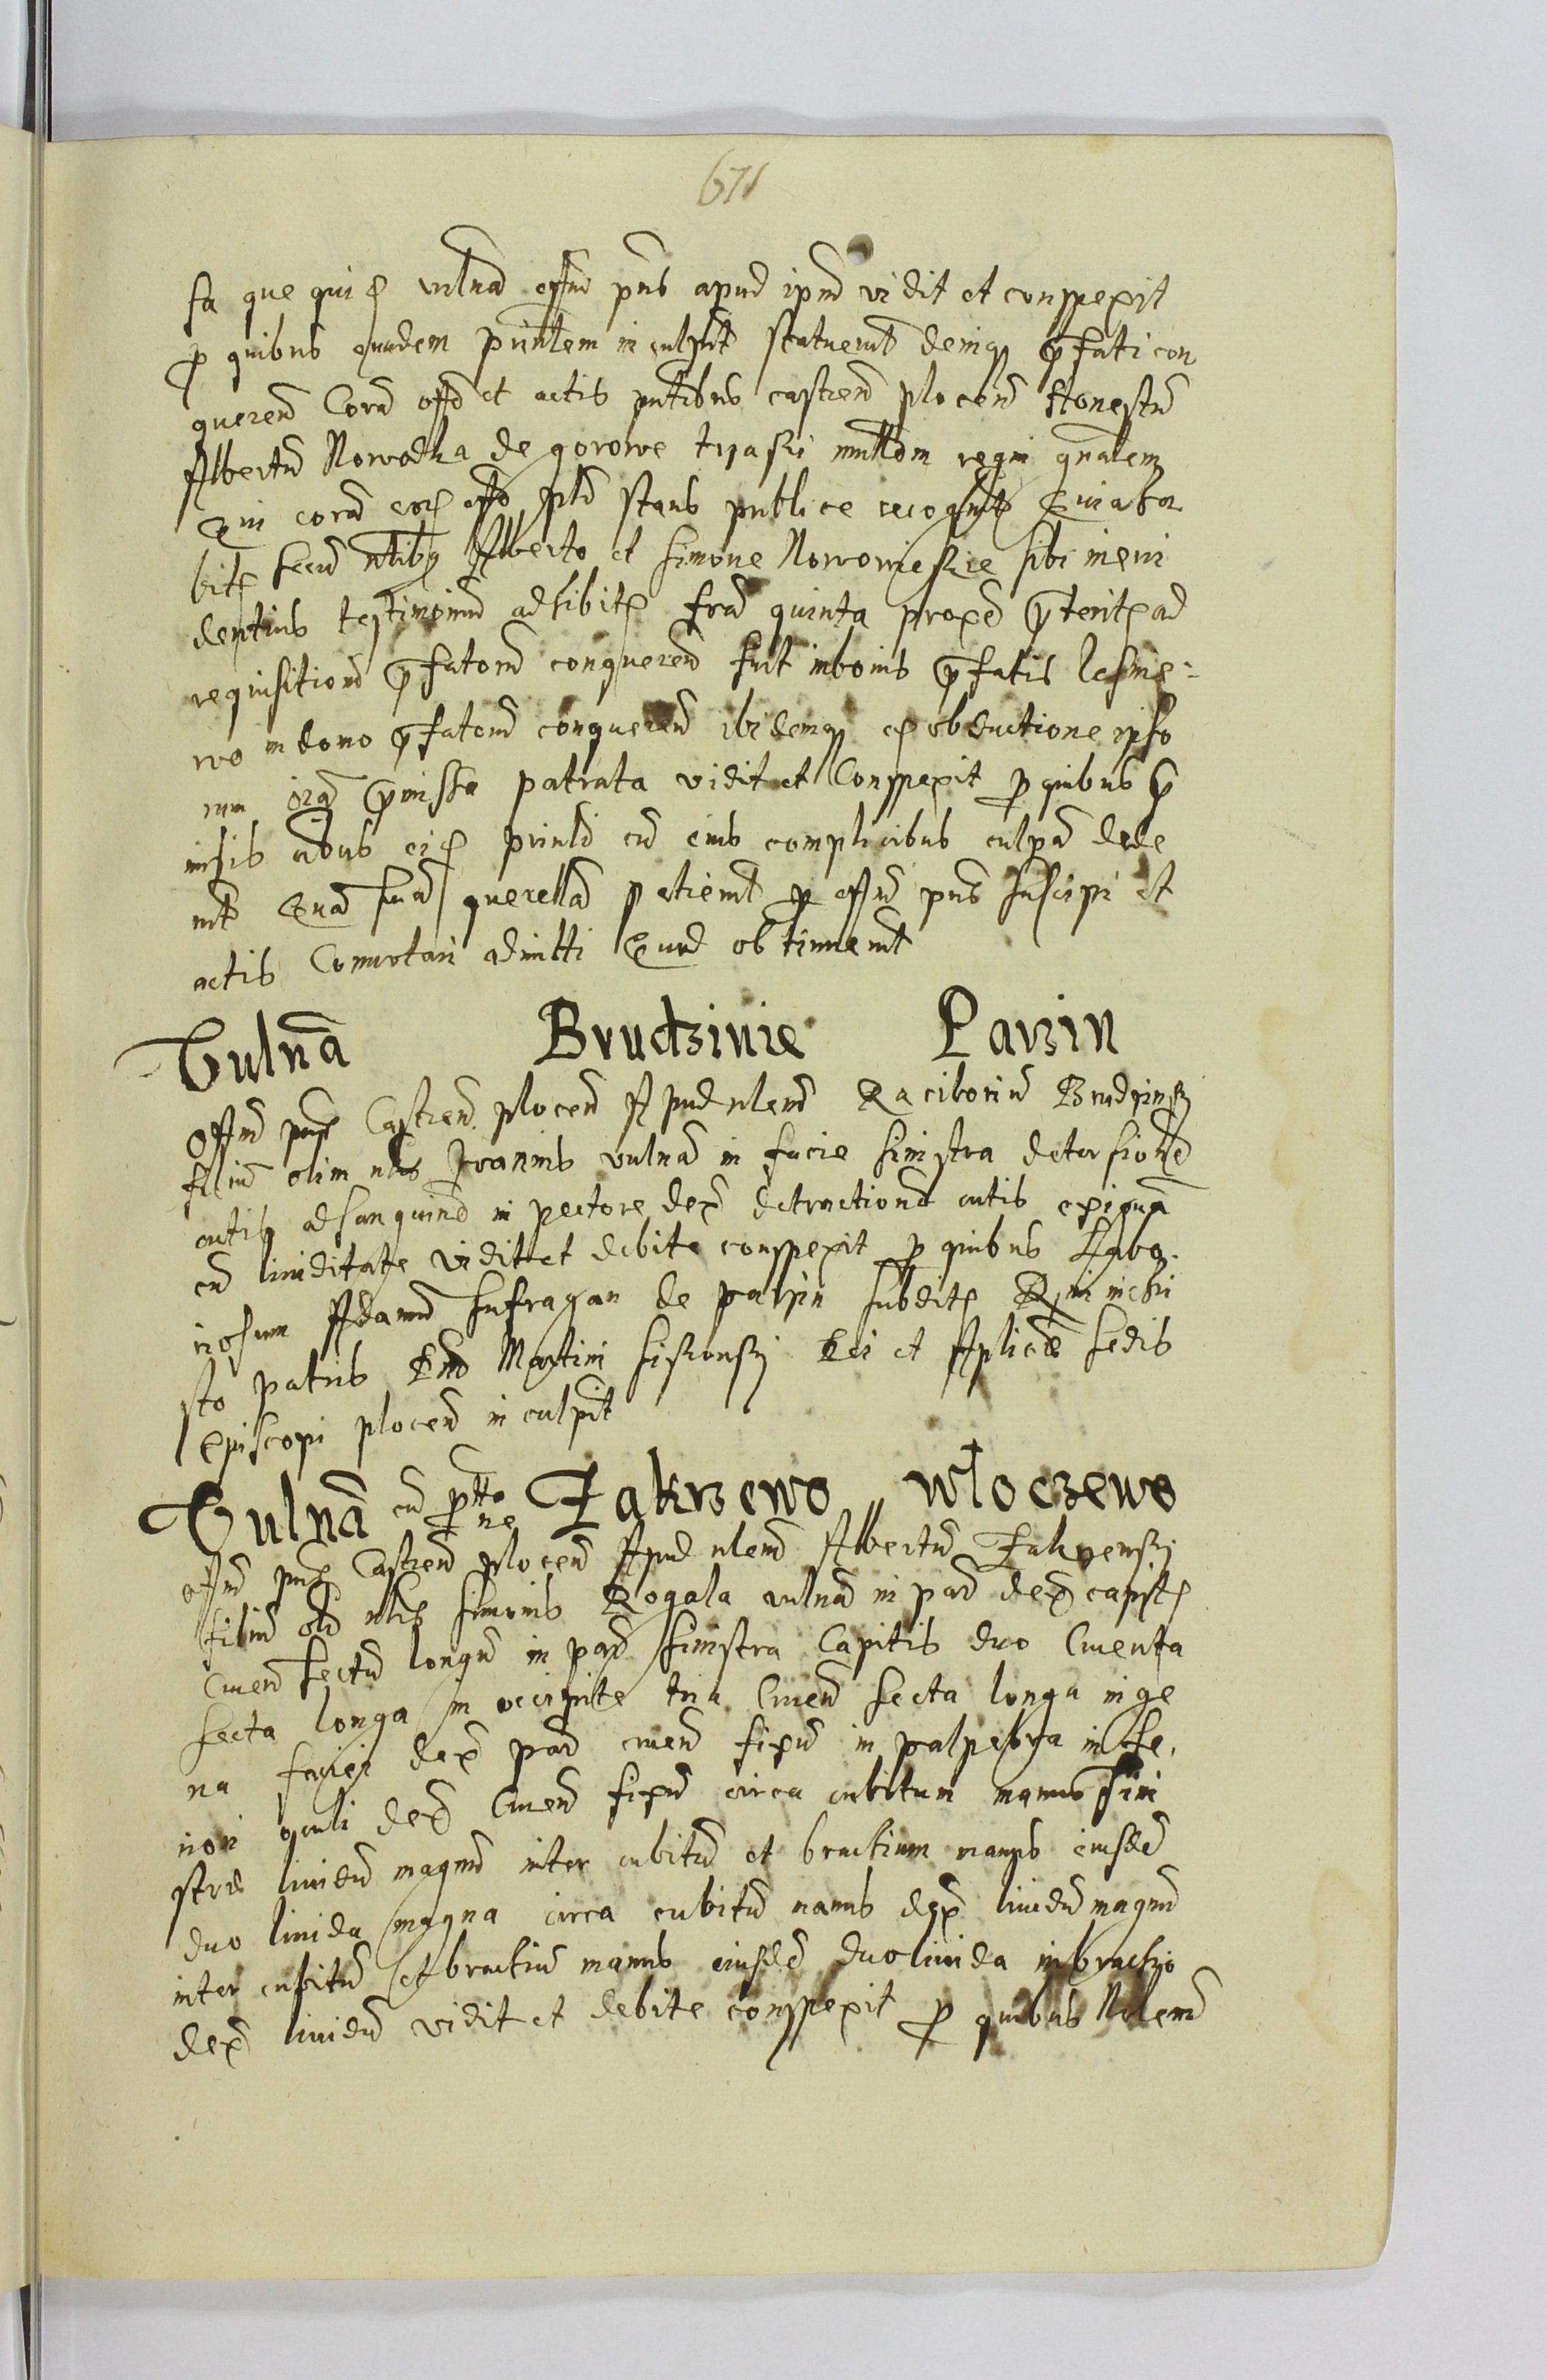 671
sa que quid vulna offm pns apud ipm vidit et conspexit
p quibus quidem princlem inculpit statuerut deinq pfati con
queren Cora offo et actis pntibus castren plocen Honestu
Albertu Nowodka de gorowe tyaski mltlom regni gnalem
Qui cora eod offo stans publice recognit Quia ha
bit secu nlibq Alberto et Simone Nowowieskie sibi inevi
dentius testimoniu adhibit fria quinta proxe pterit ad
requisitione pfatoru conqueren fuit inbonis pfatis lesnie-
wo in domo pfatoru conqueren ibidemq ex obductione ipso
rum oiq pmissa patrata vidit et Conspexit p quibus p
missis oibus eid princli cu eius complicibus culpa dede
rut Qua sua querella petierut p offm pns suscipi et
actis Connotari admitti Quod obtinuerut
Vulna Brudzinie Parzin
Offm pns Castren plocen Apud nlem Raciboriu Brudzinsky
filiu olim nlis Joannis vulna in facie sinistra detersione
cutis ad sanguine in pectore dex detractione cutis exigua
cu liuiditate vidit et debite conspexit p quibus Labo
riosum Adamu Sufragan de parzin subdit Rmi in chri
sto patris Dno Martini Siskowsky Dei et Aplice Sedis
Episcopi plocen inculpit
Vulna cu ptto ne Zakrzewo włoczewo
offm pns Castren plocen Apud nlem Albertu Zakrzewsky
filiu oli nlis Simonis Rogala vulna in par dex capit
Cruen sectu longu in par sinistra Capitis duo Cruenta
secta longa in occipite tria Cruen secta longa in ge
na faciei dex par cruen fixu in palpebra infe
riori oculi dex Cruen fixu circa cubitum manus sini
stre liuidu magnu inter cubitu et brachium manus eiusde
duo liuida magna circa cubitu manus dex liuidu magnu
inter cubitu et brachiu manus eiusde duo liuida in brachio
dex liuidu vidit et debite conspexit p quibus Nlem